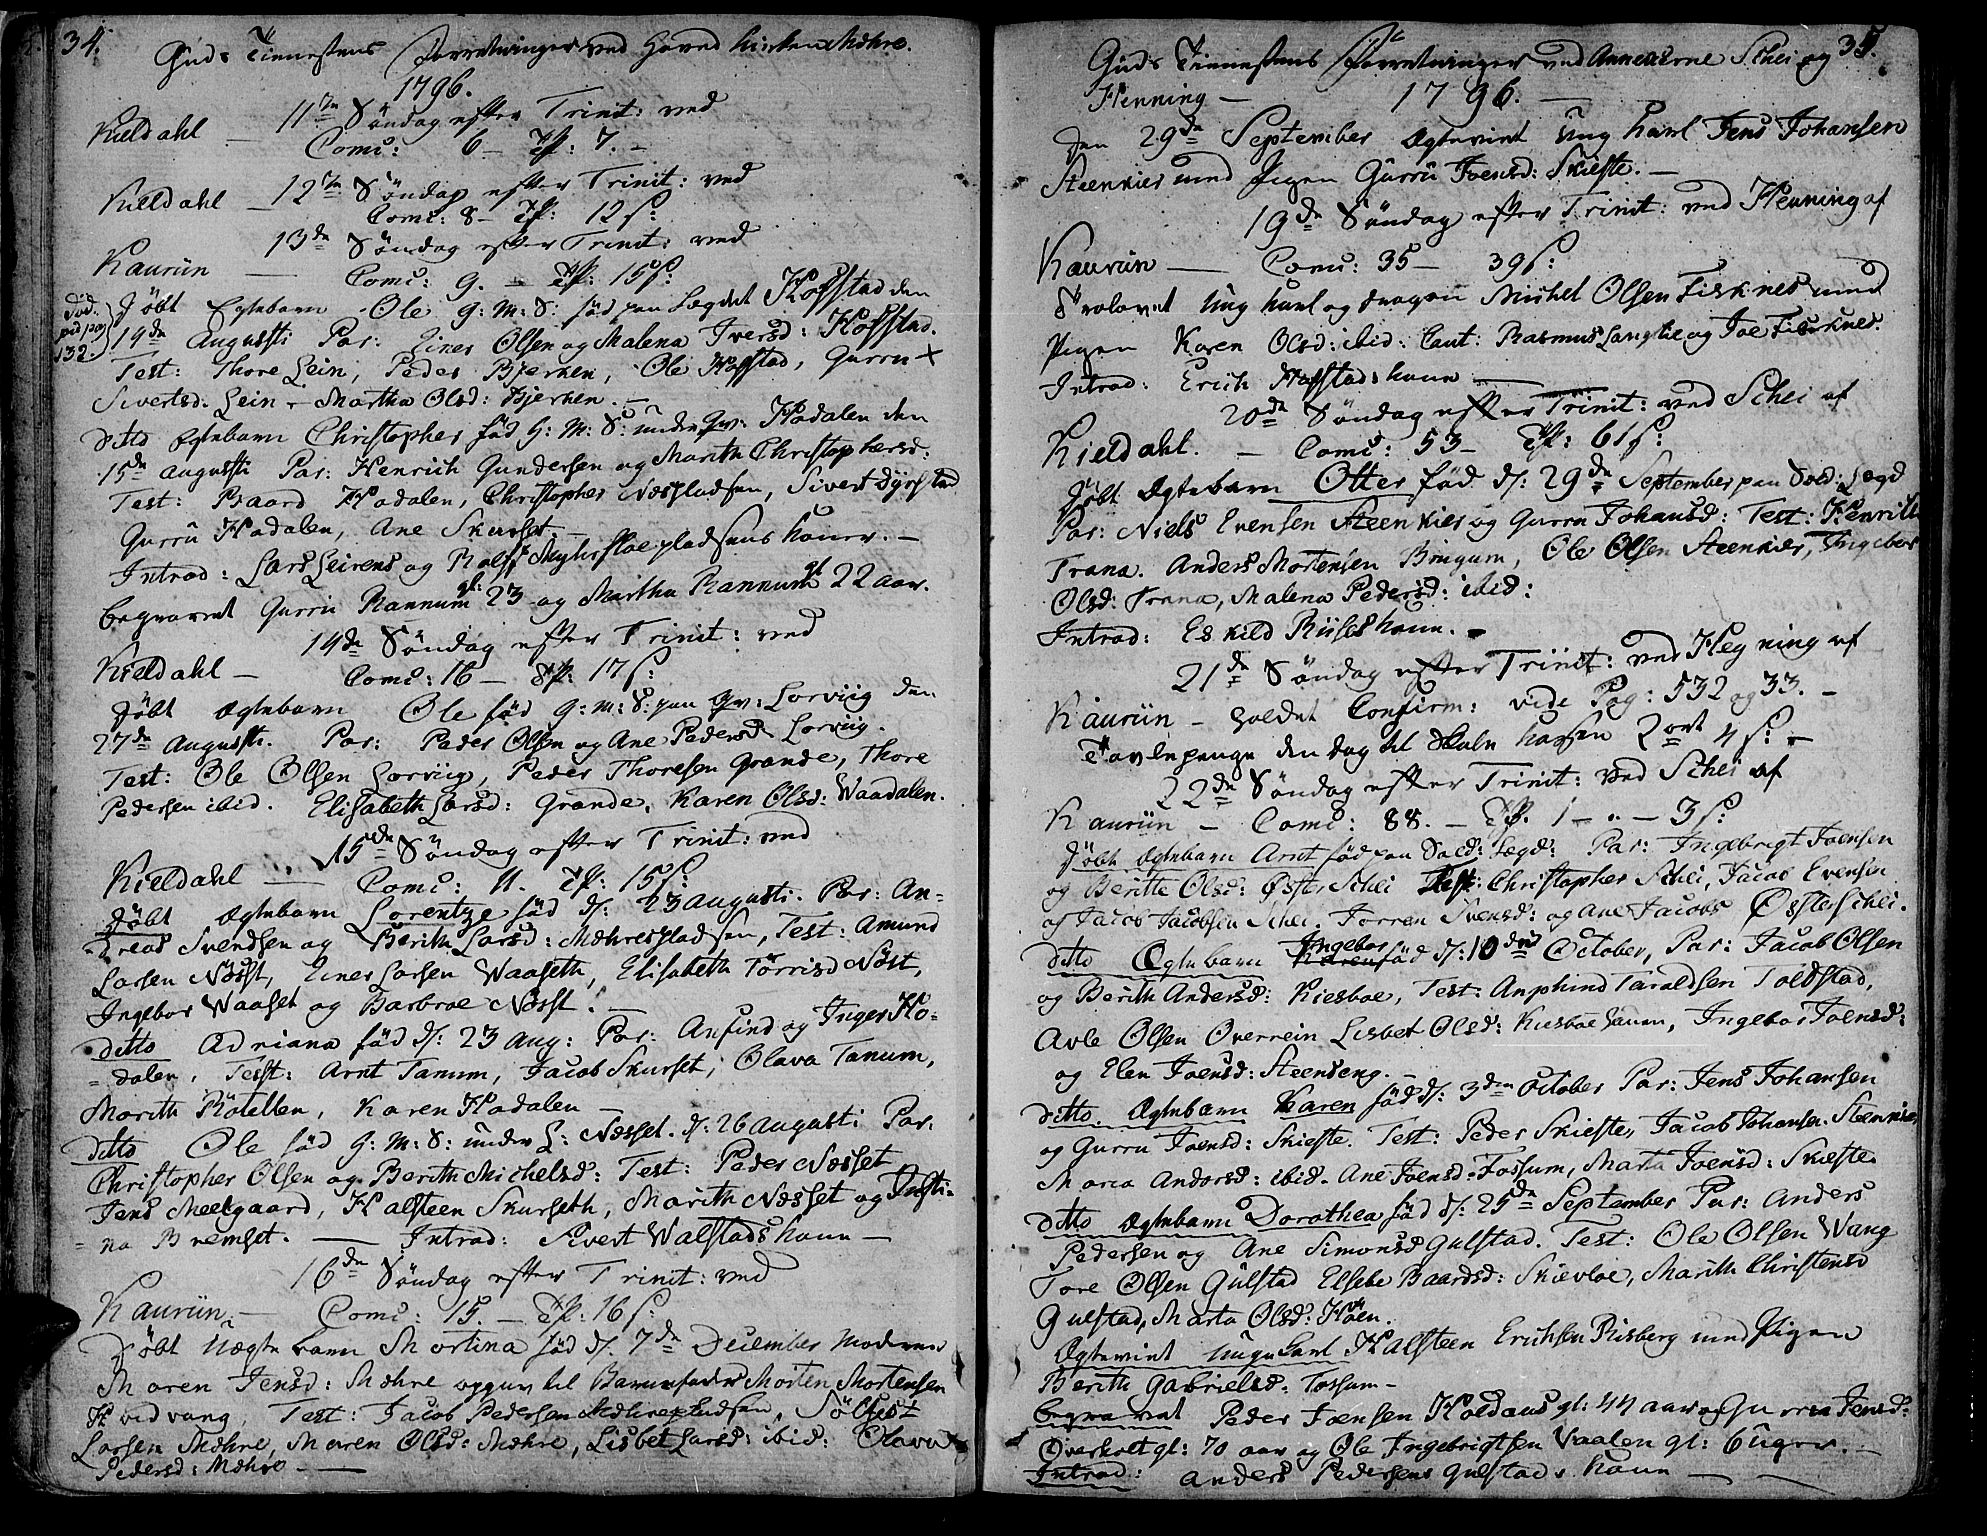 34.
Guds Tienestens Forretninger ved Hoved kirken Mæhre.
1796.
11te Söndag efter Trinit: ved
Kieldahl — Comu: 6 — Tp: 7. —
12te Söndag efter Trinit: ved
Kieldahl — Comu: 8 — Tp: 12 s:
13de Söndag efter Trinit: ved
Kaurün — Comu: 9. — Tp: 15 s:
Död. vid pag 132.
Döbt Egtebarn Ole g: M: S: föd paa Lægdet Hofstad den
19de Augusti Par: Einer Olsen og Malena Iversd: Hofstad.
Test: Thore Lein, Peder Bjerken, Ole Hofstad, Gurru
Sivertsd: Lein — Martha Olsd: Bjerken. —
ditto Egtebarn Christopher föd g: M: S: under Gv: Hadalen den
15de Augusti Par: Henrich Gundersen og Marith Christophersd:
Test: Baard Hadalen, Christopher Næspladsen, Sivert Dyrstad
Gurru Hadalen, Ane Skurset —
Introd: Lars Leirens og Rolf Myhrsloepladsens koner. —
begravet Gurru Rannum gl: 23 og Martha Rannum gl 22 aar.
14de Söndag efter Trinit: ved
Kieldahl — Comu: 16 — Tp: 17 s:
Döbt Egtebarn Ole föd g: m: S: paa Gv: Lorviig den
27de Augusti. Par: Peder Olsen og Ane Pedersd Lorviig.
Test: Ole Olsen Lorviig, Peder Thoresen Grande, Thore
Pedersen ibid. Elisabeth Larsd: Grande, Karen Olsd: Waadalen.
15de Söndag efter Trinit: ved
Kieldahl — Comu: 11. Tp: 15 s:
Döbt Egtebarn Lorentze föd d: 23 Augusti. Par: An-
dreas Svendsen og Berith Larsd: Mæhrespladsen, Test: Amund
Larsen Nösst, Einer Larsen Waaseth, Elisabeth Törrisd Nöst,
Ingebor Waaset og Barbroe Nösst. —
ditto Adriana föd d: 23 Aug: Par: Anfind og Inger Ho-
dalen, Test: Arnt Tanum, Jacob Skurset, Olava Tanum,
Marith Rötellen, Karen Hadalen —
ditto Ole föd g: M: S: under L: Næsset. d: 26 Augusti Par.
Christopher Olsen og Berith Michelsd: Test: Peder Næsset
Jens Meelgaard, Halsteen Skurseth, Marith Næsset og Justi-
na Bremset. — Introd: Sivert Walstads kone —
16de Söndag efter Trinit: ved
Kaurün — Comu: 15. — Tp: 16 s:
Döbt Uægte barn Mortina föd d: 7de December Moderen
Maren Jensd: Mæhre opgiv til Barnefader Morten Mortensen
Hvidvang, Test: Jacob Pedersen Mæhrepladsen, Sölfest
Larsen Mæhre, Maren Olsd: Mæhre, Lisbet Larsd: ibid: Olava
Pedersd: Mæhre —
35.
Guds Tienestens Forretninger ved Annexerne Schei og
Henning — 1796. —
den 29de September Egteviet Ung karl Jens Johansen
Steenkier med Pigen Gurru Joensd: Skiefte. —
19de Söndag efter Trinit: ved Henning af
Kaurün — Comu: 35 — 39 s:
Trolovet Ung karl og dragon Michel Olsen Fisknes med
Pigen Karen Olsd: ibid: Caut: Rasmus Langlie og Joe Fisknes.
Introd: Erich Hofstads kone —
20de Söndag efter Trinit: ved Schei af
Kieldahl. — Comu: 53 — Tp: 61 s:
Döbt Egtebarn Otter föd d: 29de September paa Sold: Lægd
Par: Niels Evensen Steenkier og Gurru Johansd: Test: Henrik
Trana. Anders Mortensen Bingum, Ole Olsen Steenkier, Ingebor
Olsd: Trana, Malena Pedersd: ibid:
Introd: Eskild Riises kone. —
21de Söndag efter Trinit: ved Hegning af
Kaurün — holdet Confirm: vide Pag: 532 og 33. —
Tavlepenge den dag til Skole kassen 2 ort 4 s: —
22de Söndag efter Trinit: ved Schei af
Kaurün — Comu: 88. — Tp. 1 — " — 3 s:
Döbt Egtebarn Arnt föd paa Sold: Lægd: Par: Ingebrigt Joensen
og Beritte Olsd: Öster Schei Test: Christopher Schei, Jacob Evensen
og Jacob Jacobsen Schei. Torren Svensd: og Ane Jacobs Österschei.
ditto Egtebarn Ingebor föd d: 10de October, Par: Jacob Olsen
og Berith Andersd: Kiesboe, Test: Anphind Taraldsen Toldstad,
Avle Olsen Overrein Lisbet Olsd: Kiesboe kone, Ingebor Joensd:
og Elen Joensd: Steenseng. —
ditto Egtebarn Karen föd d: 3de October Par: Jens Johansen
og Gurru Joensd: Skiefte. Test: Peder Skiefte, Jacob Johansen Steenkier,
Maria Andersd: ibid. Ane Joensd: Fossum, Marta Joensd: Skiefte
ditto Egtebarn Dorothea föd d: 25de September Par: Anders
Pedersen og Ane Simonsd Gulstad. Test: Ole Olsen Wang
Tore Olsen Gulstad Elsebe Baardsd: Skievloe, Marith Christensd
Gulstad, Marta Olsd: Hoen.
Egteviet Unge karl Halsteen Erichsen Risberg med Pigen
Berith Gabrielsd: Fossum —
begravet Peder Joensen Holdaas gl: 44 aar og Gurru Jensd:
Overholt gl: 70 aar og Ole Ingebrigtsen Vaalen gl: 6 uger. —
Introd: Anders Pedersens Gulstads kone —